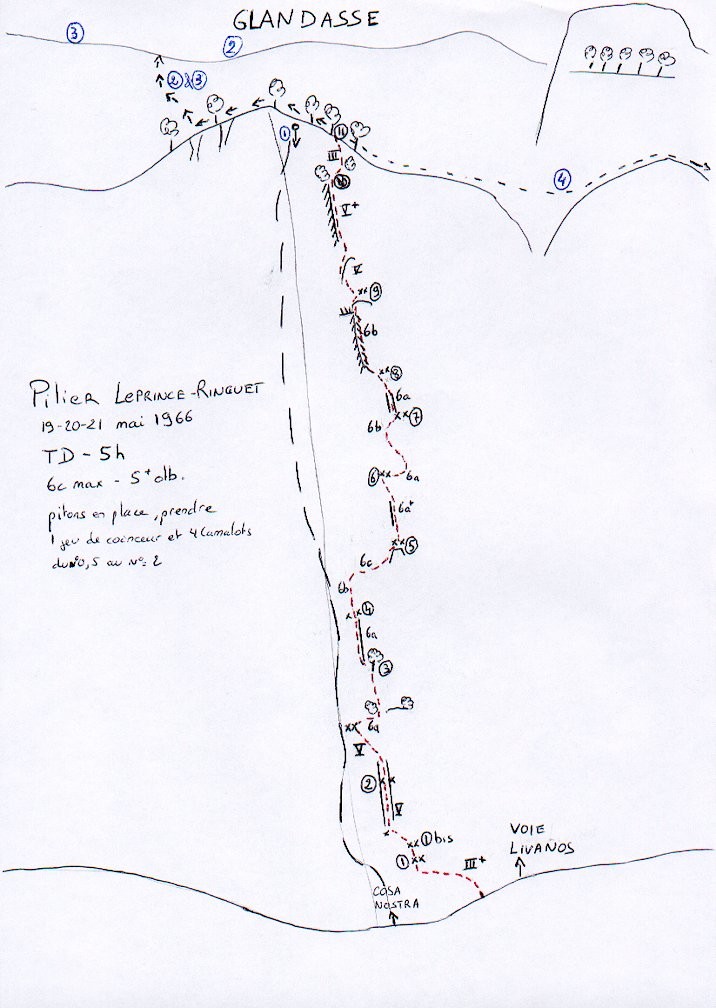 GLANDASSE
③
②
② & ③
①
⑪
III
⑩
V+
④
V
⑨
6b
⑧
6a
⑦
6b
⑥
6a
6a+
⑤
6c
6b
④
6a
③
6a
V
②
V
① bis
①
III+
Pilier LEPRINCE-RINGUET
19-20-21 mai 1966
TD - 5h
6c max - 5+ olb.
pitons en place, prendre
1 jeu de coinceur et 4 Camalots
du n°0,5 au n°2
VOIE
LIVANOS
COSA
NOSTRA